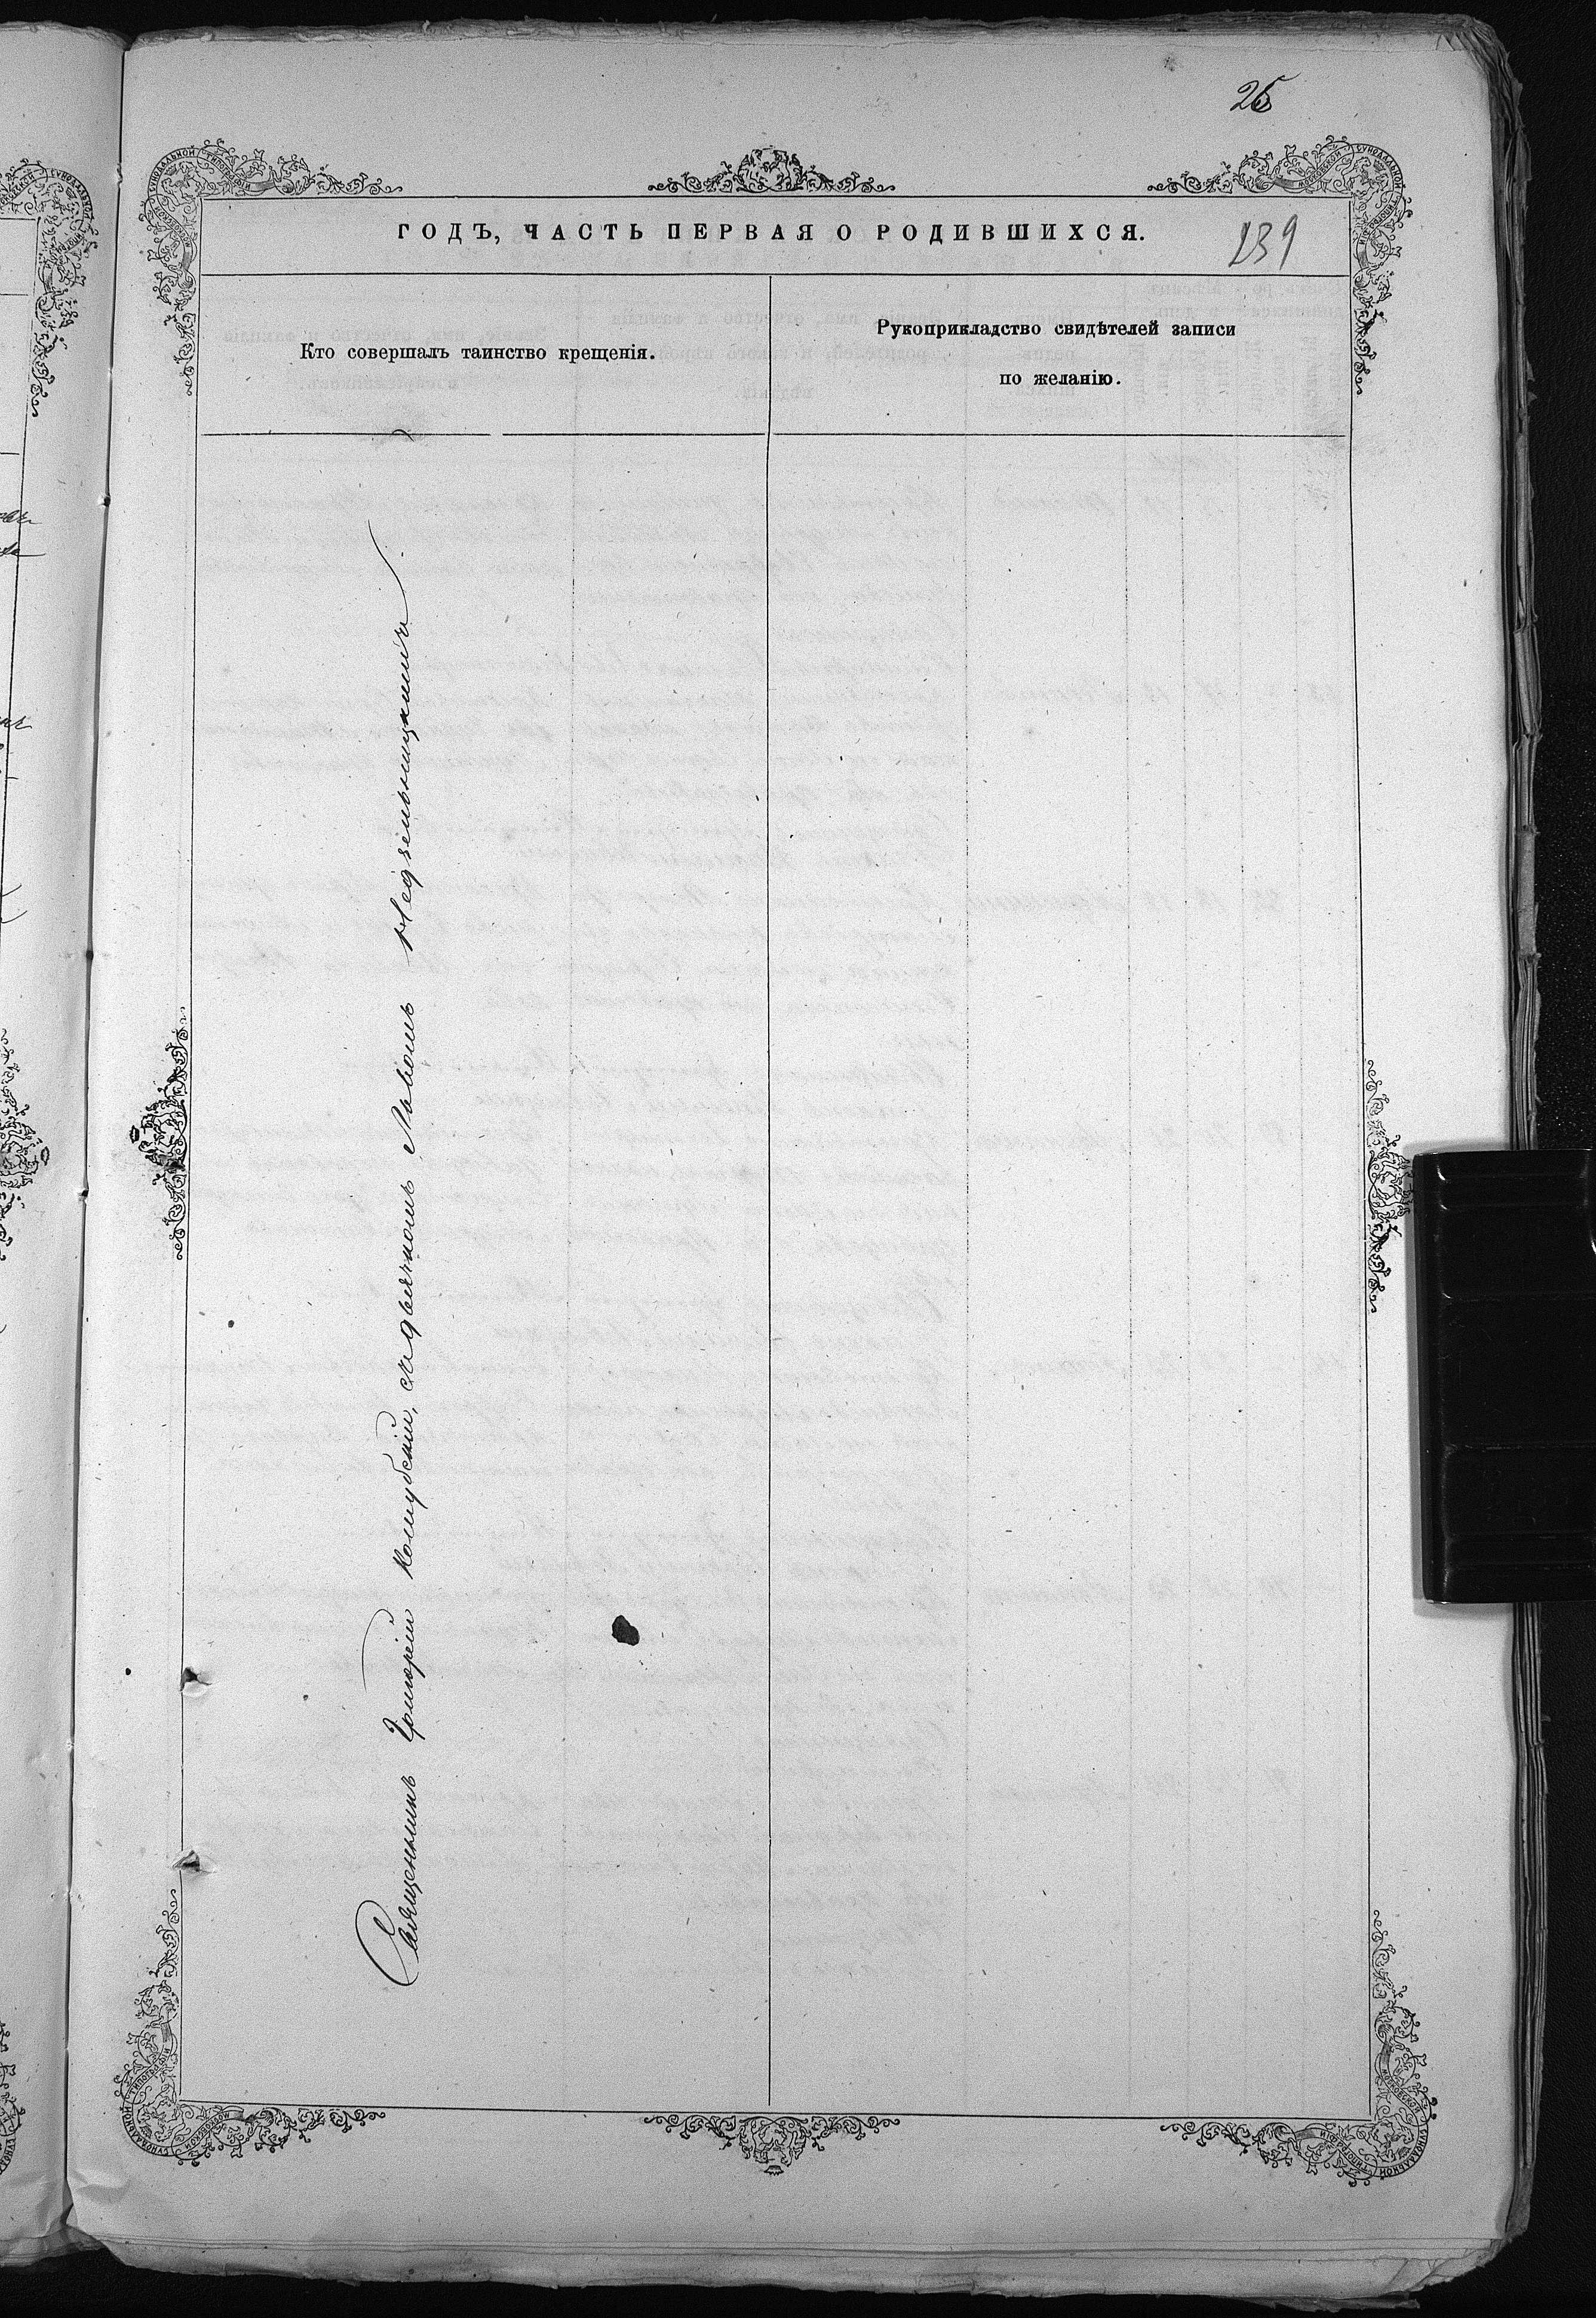 26
ГОДЪ, ЧАСТЬ ПЕРВАЯ О РОДИВШИХСЯ.
139
Кто совершалъ таинство крещенія.
Рукоприкладство свидѣтелей записи
по желанію.
Священникъ Григорій Кошубскій, съ дьячкомъ Львомъ Недзельницкимъ